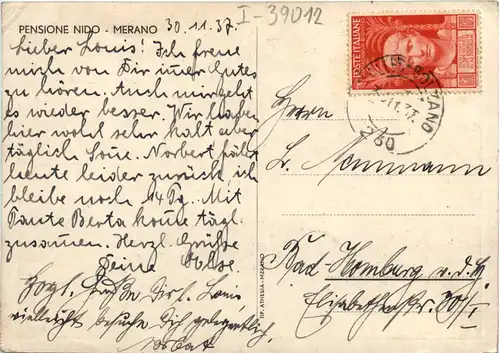 PENSIONE NIDO - MERANO
30.11.37.
I-39012
Lieber Louis! Ich freue
mich von Dir imer Gutes
zu hören. Auch mir geht
es wieder besser. Wir haben
hier wohl sehr kalt aber
täglich Sone. Norbert fährt
heute leider zurück, ich
bleibe noch 14 Tg. Mit
Tante Berta kome tägl.
zusamen. Herzl. Grüsse
Deine
Herzl. Grüße Dir l. Louis
vielleicht besuche Dich gelegentlich,
POSTE ITALIANE
MERANO
Herrn
L.
Bad-Homburg v. d. H.
Elisabethenstr. 30/I
TIP. ATHESIA - MERANO